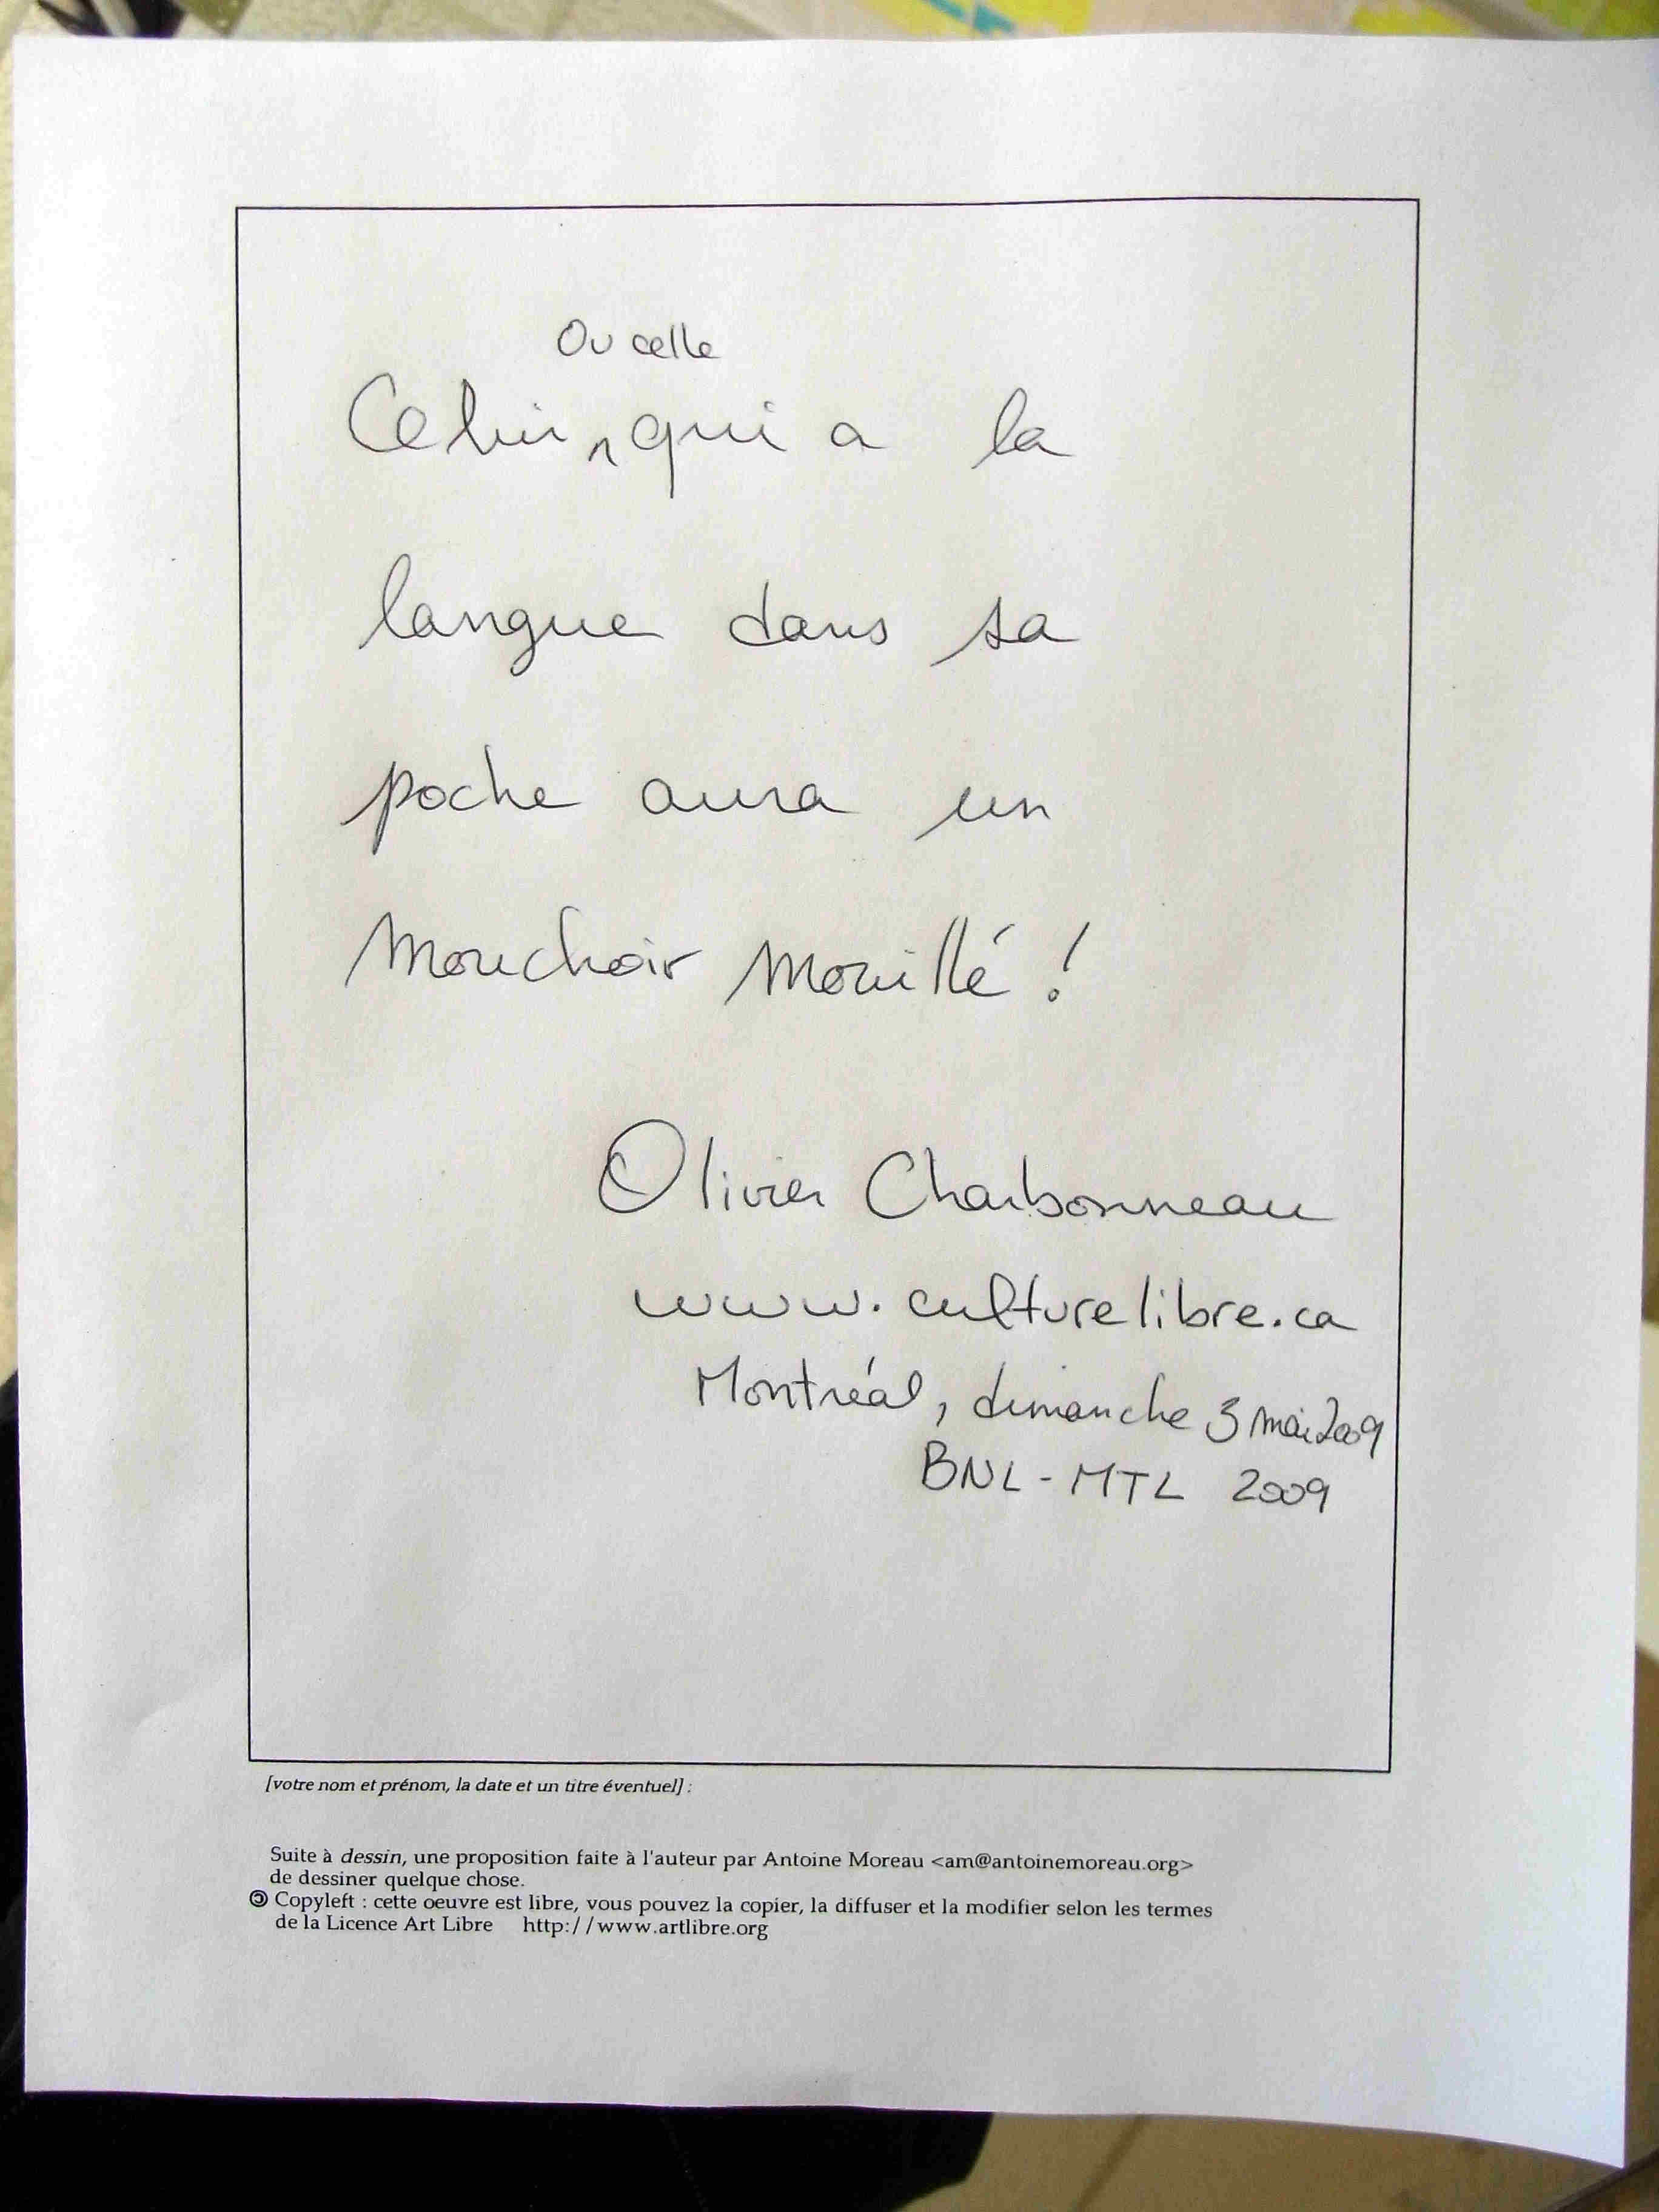 Ou celle
Celui ^ qui a la
langue dans sa
poche aura un
Mouchoir Mouillé !
Olivier Charbonneau
www.culturelibre.ca
Montréal, dimanche 3 mai 2009
BNL - MTL 2009
[votre nom et prénom, la date et un titre éventuel] :
Suite à dessin, une proposition faite à l'auteur par Antoine Moreau <am@antoinemoreau.org>
de dessiner quelque chose.
🄯 Copyleft : cette oeuvre est libre, vous pouvez la copier, la diffuser et la modifier selon les termes
de la Licence Art Libre http://www.artlibre.org